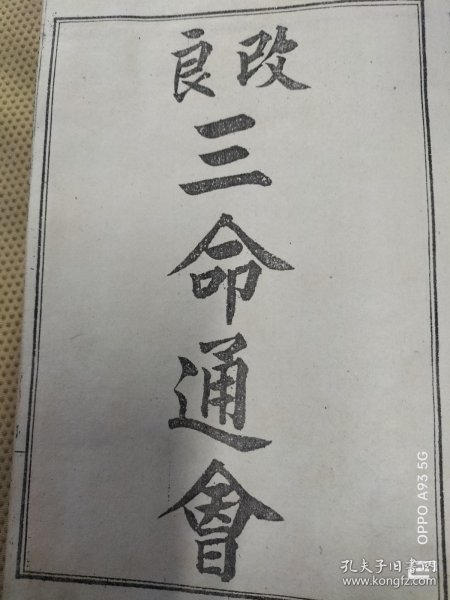 改良
三命通會
OPPO A93 5G
孔夫子旧书网
www.kongfz.com